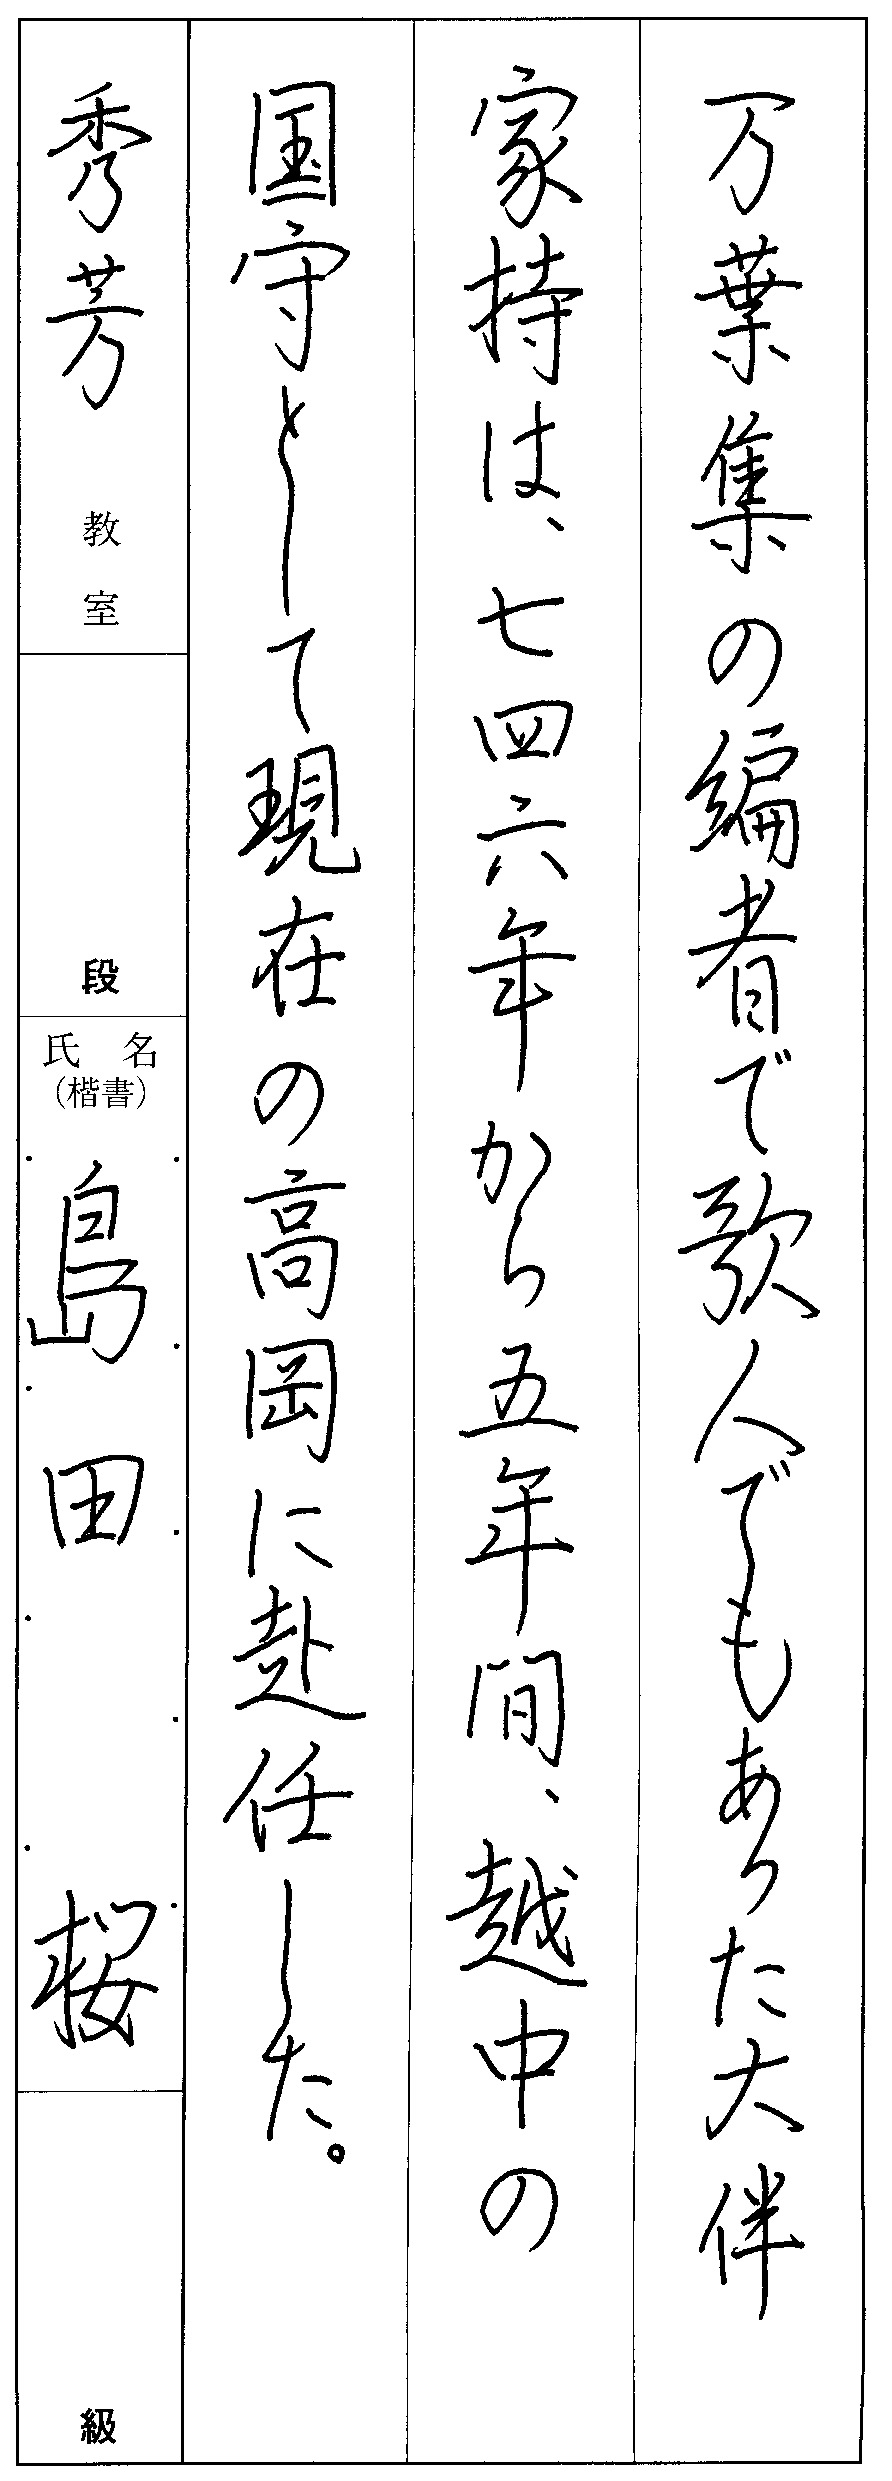 万葉集の編者で歌人でもあった大伴
家持は、七四六年から五年間、越中の
国守として現在の高岡に赴任した。
秀芳教室
段
氏名
(楷書)
島田桜
級